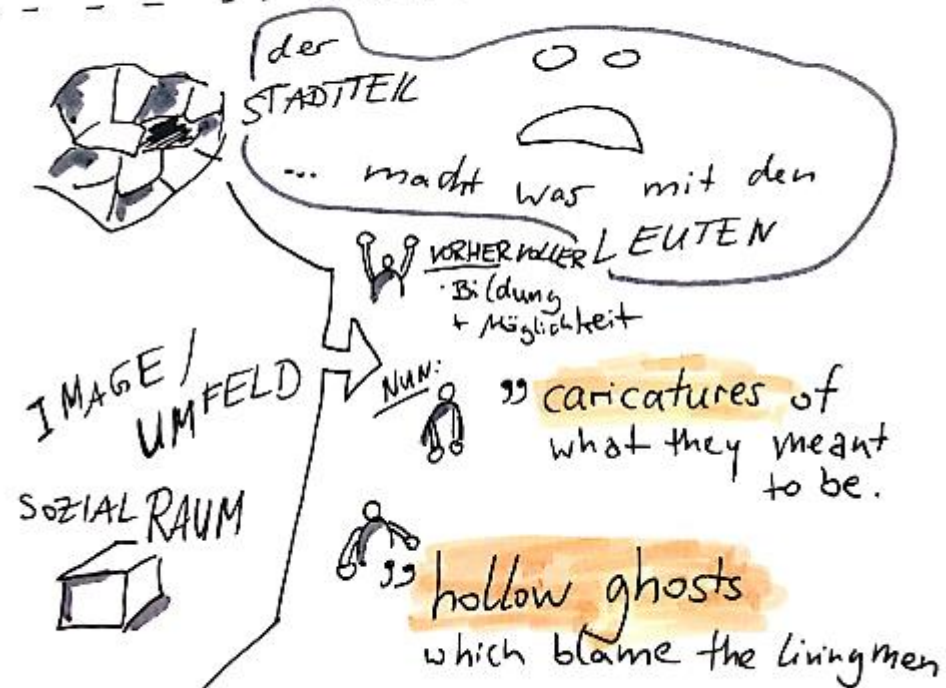 der
STADTTEIL
... macht was mit den
LEUTEN
VORHER VOLLER
· Bildung
+ Möglichkeit
IMAGE /
UMFELD
NUN:
„ caricatures of
what they meant
to be.
SOZIALRAUM
„ hollow ghosts
which blame the living men